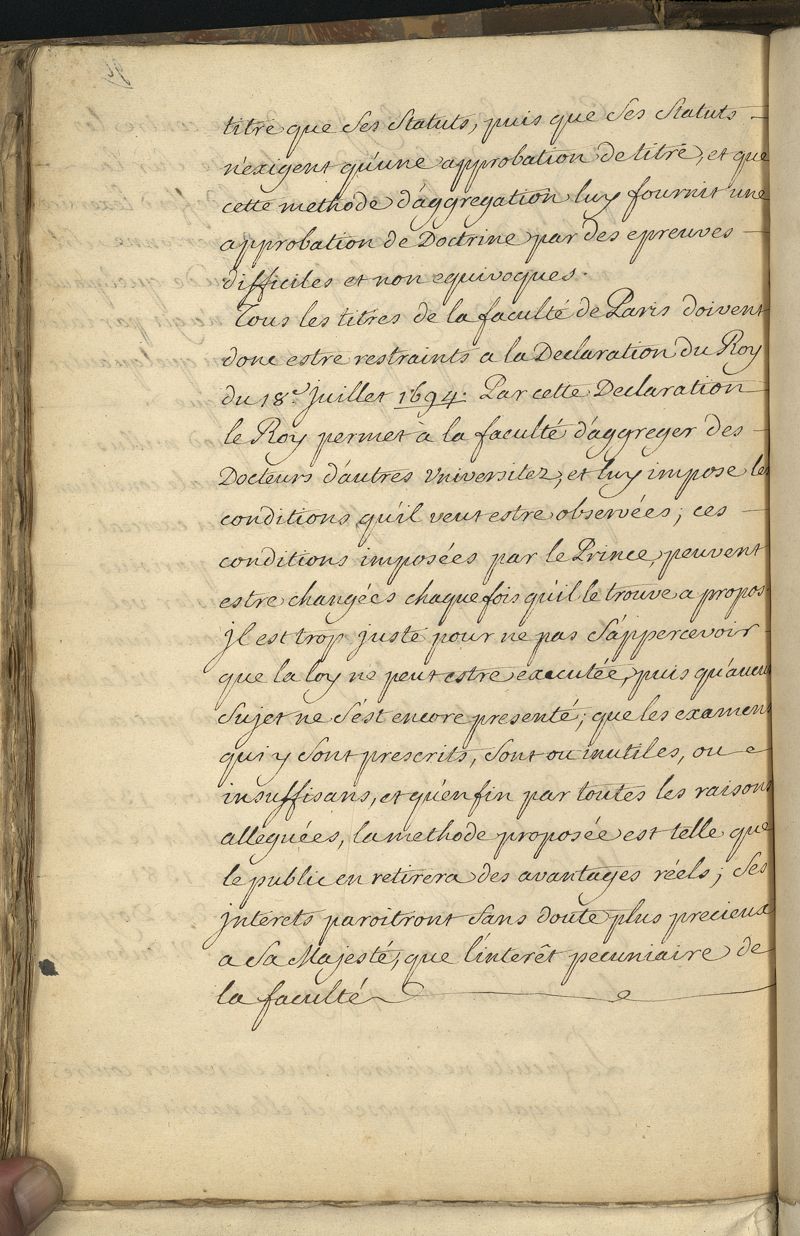 titre que Ses Statuts, puis que Ses Statuts
n'exigent qu'une approbation de titre, et que
cette methode d'aggregation luy fournit une
approbation de Doctrine par des epreuves
difficiles et non equivoques.
Tous les titres de la faculté de Paris doivent
donc estre restraints a la Declaration du Roy
du 18e. Juillet 1694. Par cette Declaration
le Roy permet à la faculté d'aggreger des
Docteurs d'autres Universitez, et luy impose les
conditions qu'il veut estre observées; ces
conditions imposées par le Prince, peuvent
estre changées chaque fois qu'il le trouve a propos
Jl est trop juste pour ne pas S'appercevoir
que la loy ne peut estre executée, puis qu'aucun
Sujet ne S'est encore presenté; que les examens
qui y Sont prescrits, Sont ou inutiles, ou
insuffisans, et qu'enfin par toutes les raisons
alleguées, la methode proposée est telle que
le public en retirera des avantages réels; Ses
jnterets paroitront Sans doute plus precieux
a Sa Majesté, que l'interêt pecuniaire de
la faculté